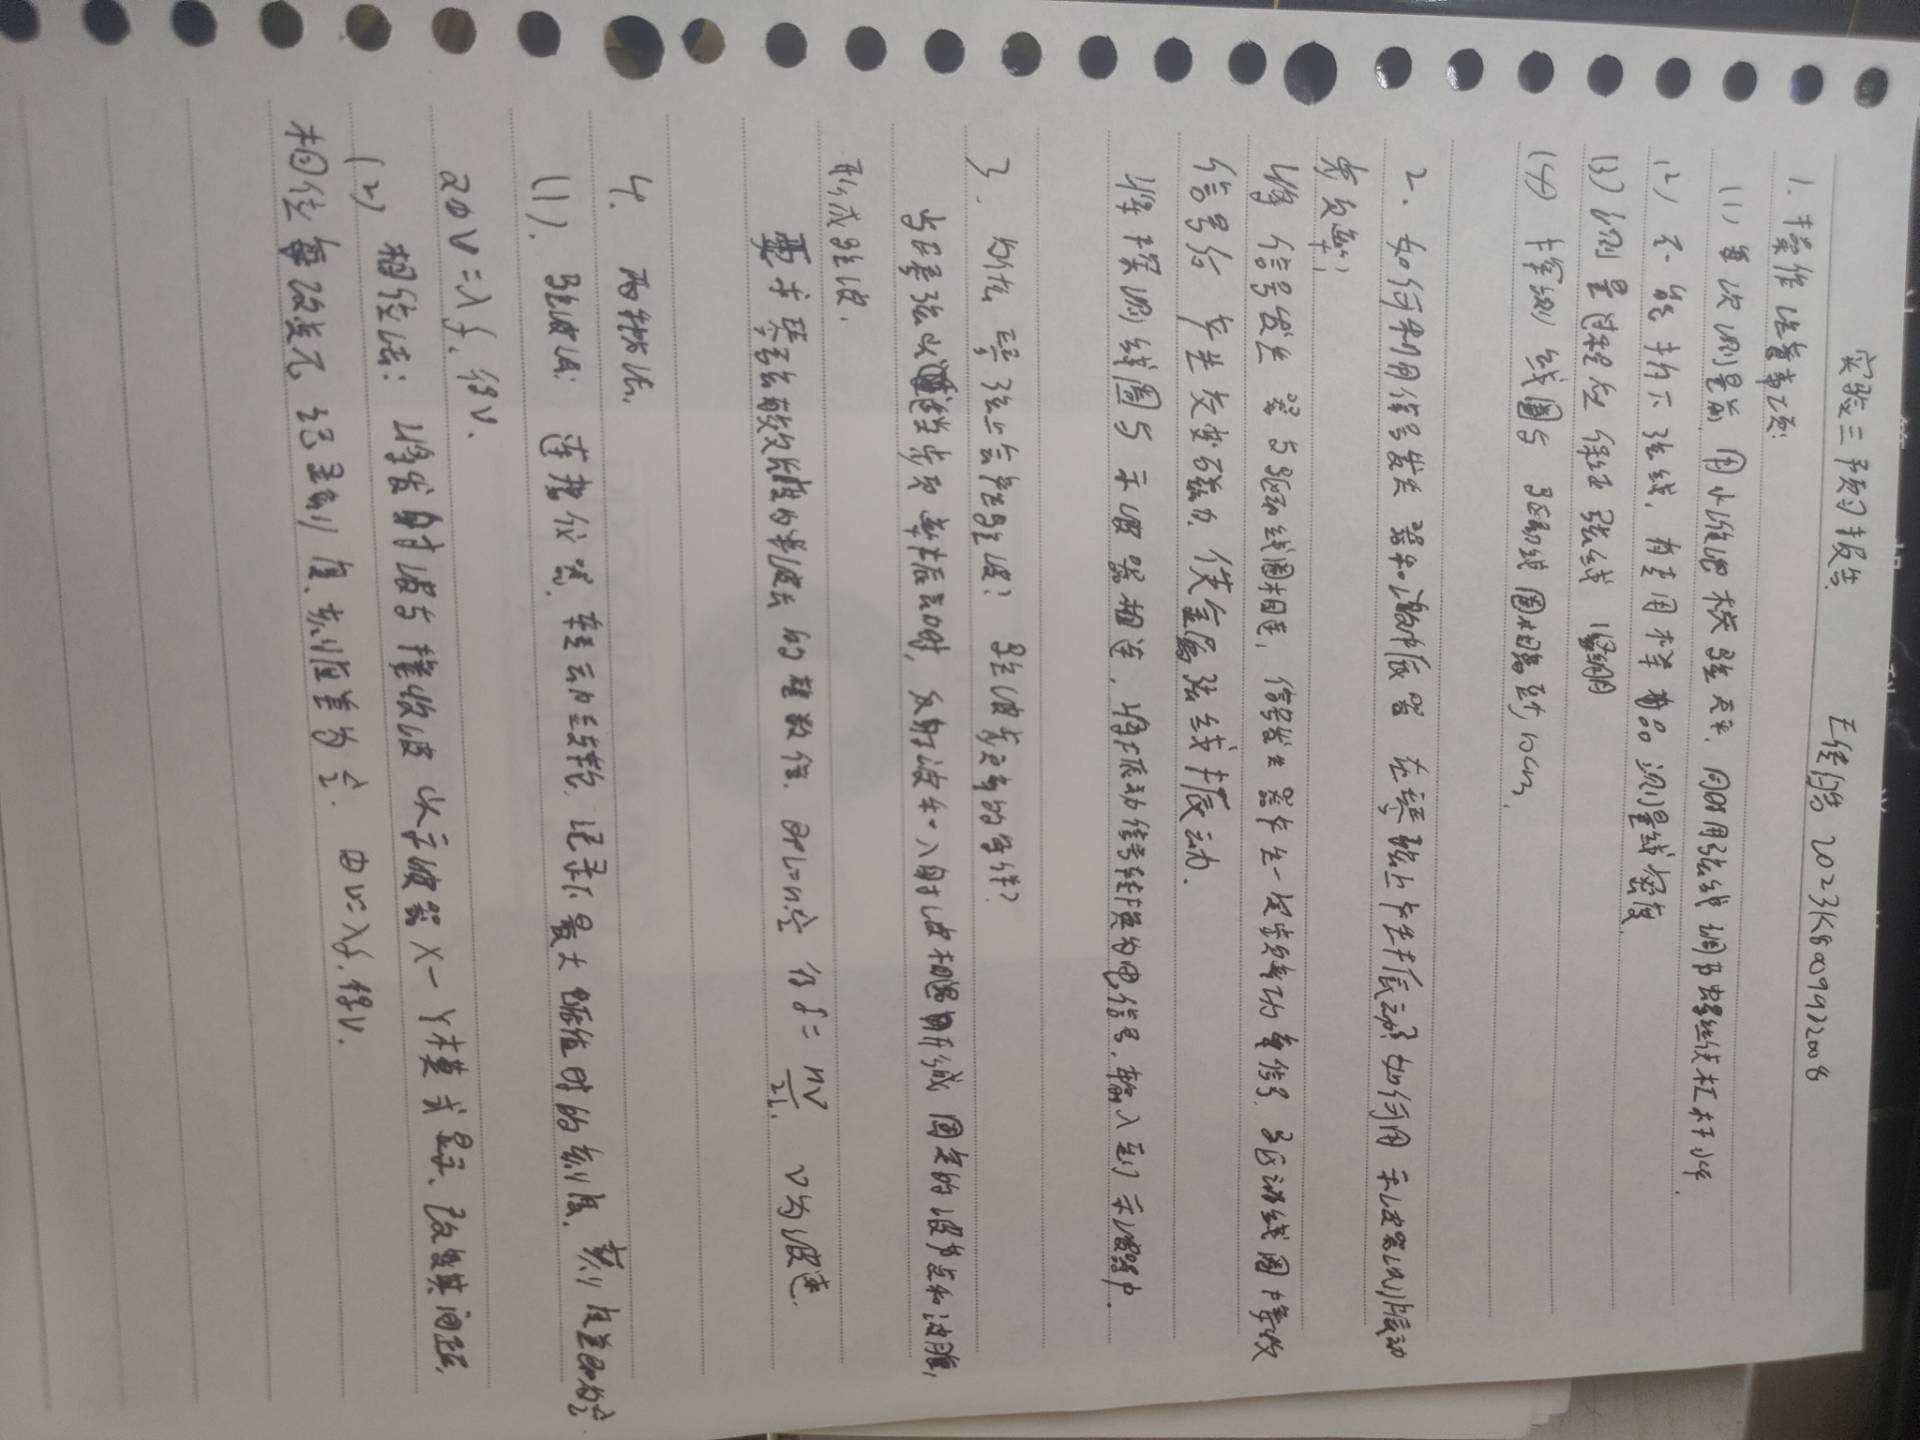 计 算 机 科 学
实验三预习报告 王佳皓 2023K8009922008
1. 操作注意事项:
(1) 每次测量前,用水准泡校验天平,同时用弦线调节螺丝使杠杆水平.
(2) 不能拆下弦线,有专用样品测量线密度.
(3) 测量过程应保证弦线紧绷
(4) 探测线圈与驱动线圈相离至少10cm.
2. 如何利用信号发生器和激振器在琴弦上产生振动?如何用示波器测振动
步频率;
将信号发生器与驱动线圈相连,信号发生器产生一定频率功率信号.驱动线圈接收
信号后产生交变磁力,使金属弦线振动.
将探测线圈与示波器相连,将振动信号转换为电信号,输入到示波器中.
3. 为什么琴弦上会产生驻波? 驻波频率的条件?
当琴弦以适当频率振动时,反射波和入射波相遇形成固定的波节点和波腹,
形成驻波.
要求琴弦有效长度为半波长的整数倍.即L=n·λ/2 得 f=nV/2L. V为波速.
4. 两种方法.
(1). 驻波法: 连接仪器,转动鼓轮,记录下最大幅值时的刻度,刻度差即为λ/2
又由V=λf,得V.
(2) 相位法: 将发射波与接收波以示波器X-Y模式显示,改变其间距,
相位每改变π记录刻度,刻度差为λ/2. 由V=λf,得V.